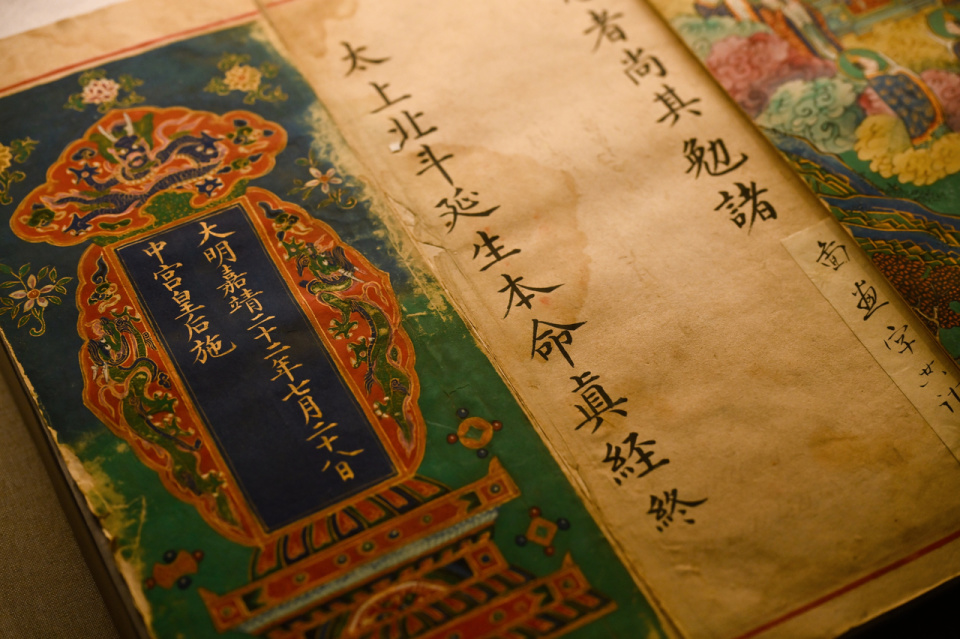 字共
者尚其勉諸
太上北斗延生本命眞経終
大明嘉靖二十二年七月二十八日
中宮皇后施